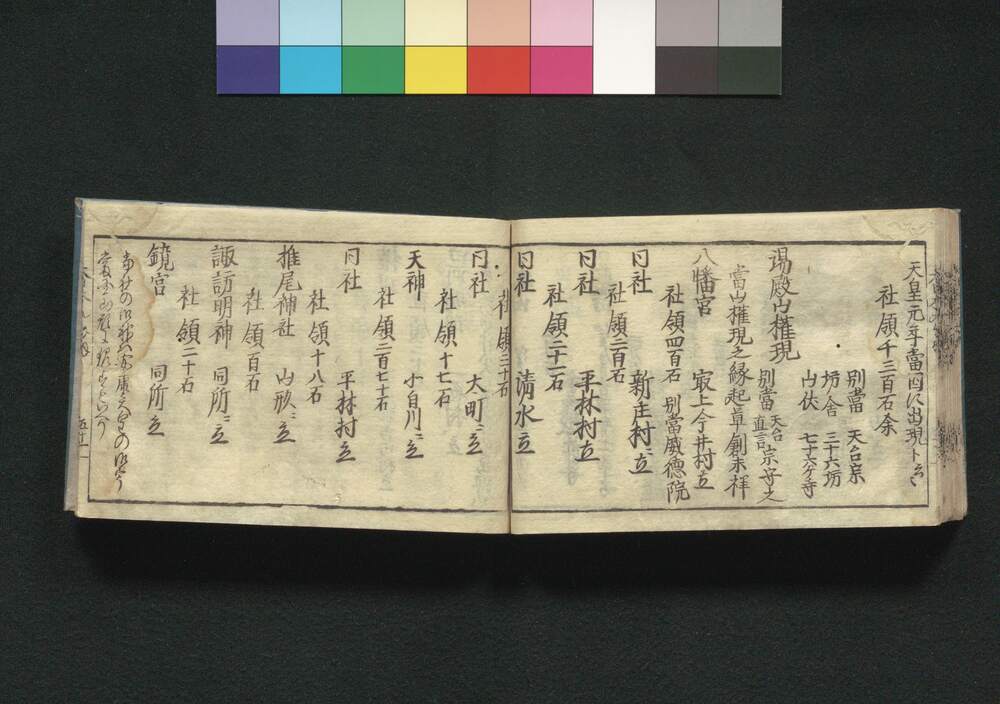 天皇元年當山に出現ト云々
社領千三百石余
別當 天台宗
坊舎 三十六坊
山伏 七十六ケ寺
湯殿山権現
別當 天台 真言 宗守之
當山権現之縁起草創未拝
八幡宮 最上今井村ニ立
社領四百石 別當威徳院
同社 新庄村ニ立
社領二百石
同社 平林村ニ立
社領二十一石
同社 清水ニ立
社領三十石
同社 大町ニ立
社領十七石
天神 小白川ニ立
社領二百七十石
同社 平林村ニ立
社領十八石
推尾神社 山形ニ立
社領百石
諏訪明神 同所ニ立
社領二十石
鏡宮 同所ニ立